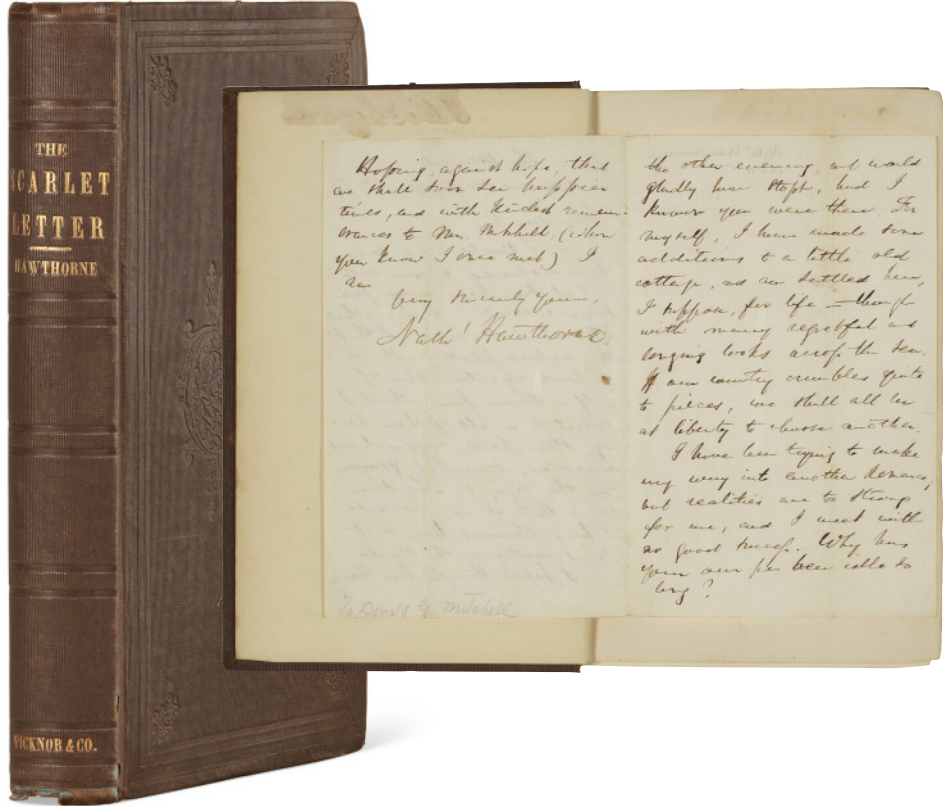 THE
SCARLET
LETTER
HAWTHORNE
TICKNOR & CO.
Hoping, against hope, that
we shall soon see happier
times, and with kindest remem-
brances to Mrs. Mitchell, (whom
you know I once met) I
am
Very sincerely yours,
Nathl Hawthorne.
To Donald G Mitchell
the other evening, and would
gladly have stopt, had I
known you were there. For
myself, I have made some
additions to a little old
cottage, and am settled here,
I suppose, for life — though
with many regretful and
longing looks across the sea.
If our country crumbles quite
to pieces, we shall all be
at liberty to choose another.
I have been trying to make
my way into another Romance,
but realities are too strong
for me, and I meet with
no good success. Why has
your own pen been idle so
long?